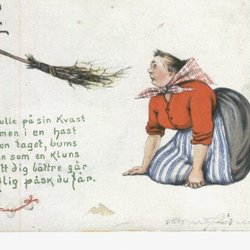 ulle på sin Kvast
men i en hast
on taget, bums
n som en kluns
tt dig bättre går
lig påsk du får.